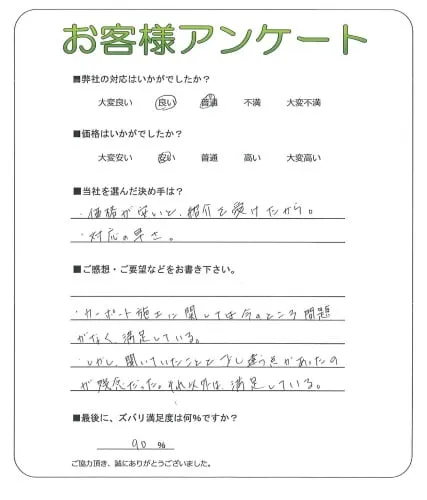 お客様アンケート
■弊社の対応はいかがでしたか？
大変良い 良い 普通 不満 大変不満
■価格はいかがでしたか？
大変安い 安い 普通 高い 大変高い
■当社を選んだ決め手は？
・価格が安いと、紹介を受けたから。
・対応の早さ。
■ご感想・ご要望などをお書き下さい。
・カーポート施工に関しては今のところ問題
がなく、満足している。
・しかし、聞いていたことと少し違う点があったの
が残念だった。それ以外は満足している。
■最後に、ズバリ満足度は何%ですか？
90 %
ご協力頂き、誠にありがとうございました。